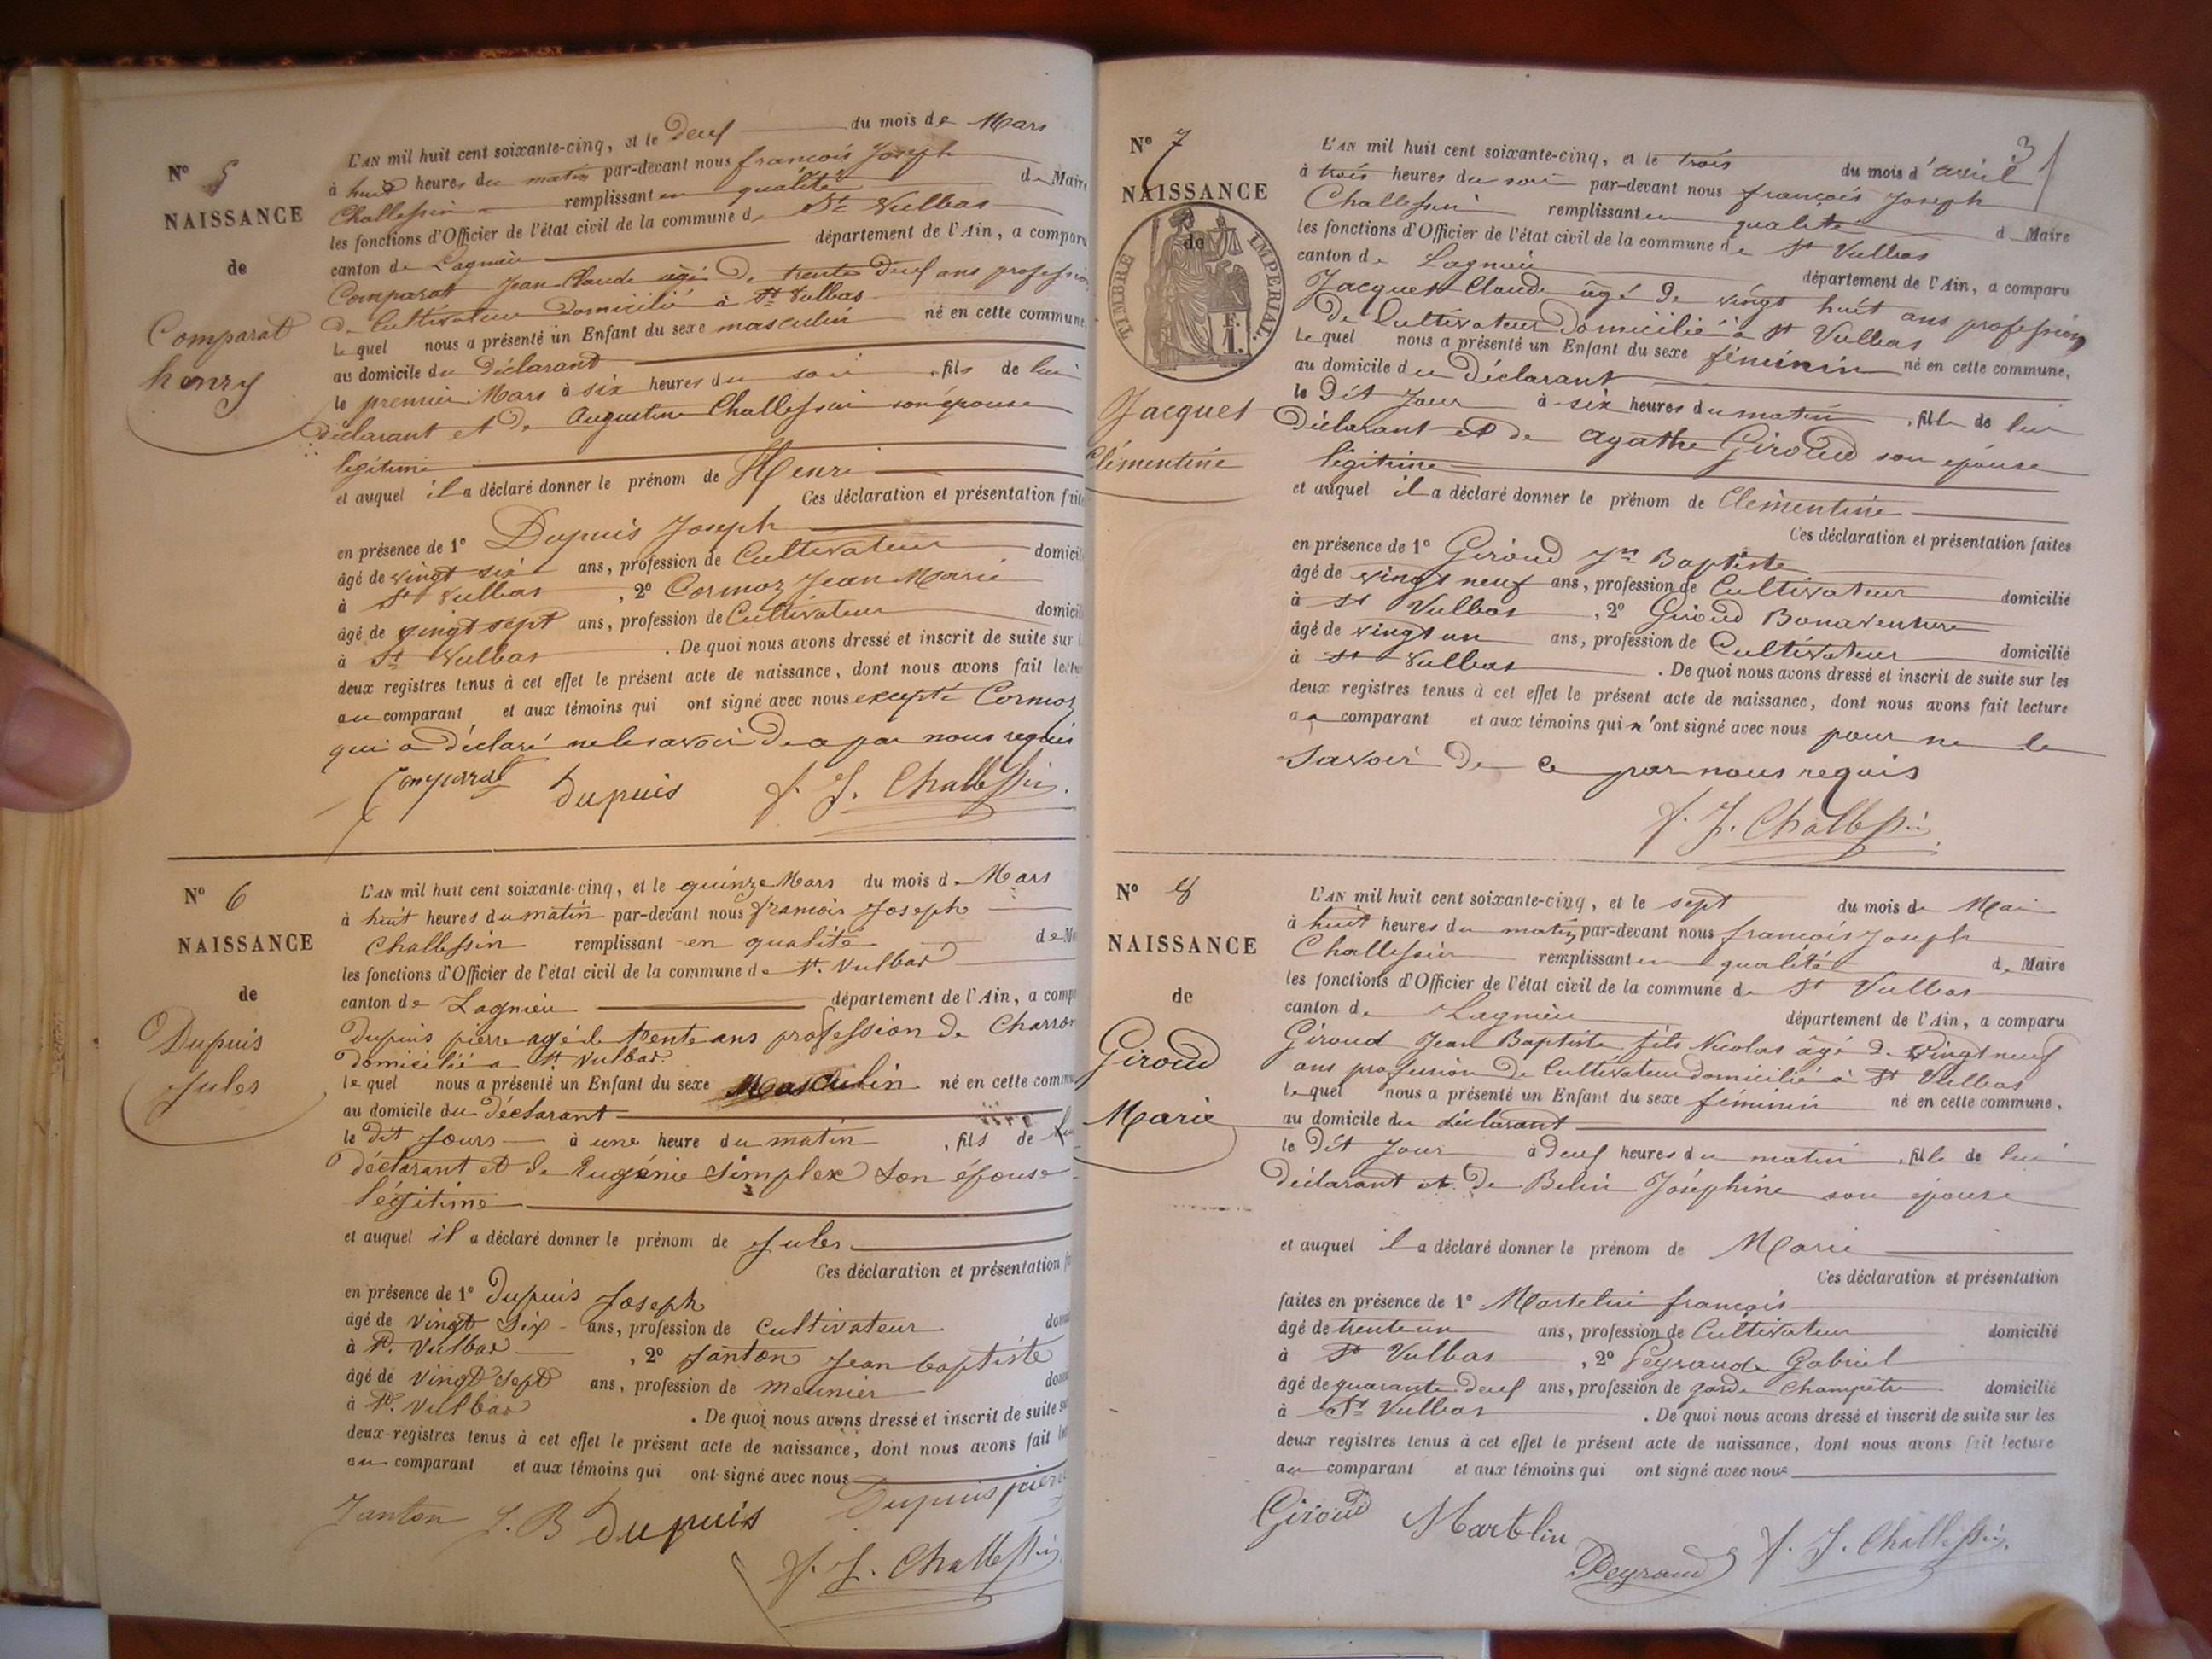 N° 5
NAISSANCE
de
Comparat
henry
L'AN mil huit cent soixante-cinq, et le deux du mois de Mars
à huit heures du matin par-devant nous françois Joseph
Challessin remplissant en qualité de Maire
les fonctions d'Officier de l'état civil de la commune de St Vulbas
canton de Lagnieu département de l'Ain, a comparu
Comparat Jean Claude âgé de trente deux ans profession
de Cultivateur domicilié à St Vulbas
lequel nous a présenté un Enfant du sexe masculin né en cette commune,
au domicile du déclarant
le premier Mars à six heures du soir, fils de lui
déclarant et de Augustine Challessin son épouse
légitime
et auquel il a déclaré donner le prénom de Henri
Ces déclaration et présentation faites
en présence de 1° Dupuis Joseph
âgé de vingt six ans, profession de Cultivateur domicil
à St Vulbas, 2° Cormoz Jean Marie
âgé de vingt sept ans, profession de Cultivateur domicil
à St Vulbas. De quoi nous avons dressé et inscrit de suite sur
deux registres tenus à cet effet le présent acte de naissance, dont nous avons fait lectu
au comparant et aux témoins qui ont signé avec nous excepté Cormoz
qui a déclaré ne le savoir de ce par nous requis
Comparat Dupuis f. J. Challessin.
N° 6
NAISSANCE
de
Dupuis
Jules
L'AN mil huit cent soixante-cinq, et le quinze Mars du mois de Mars
à huit heures du matin par-devant nous françois Joseph
Challessin remplissant en qualité de M
les fonctions d'Officier de l'état civil de la commune de St. Vulbas
canton de Lagnieu département de l'Ain, a comp
Dupuis pierre agé de trente ans profession de Charron
domicilié a St Vulbas
lequel nous a présenté un Enfant du sexe Masculin né en cette comm
au domicile du déclarant
le dit Jours à une heure du matin, fils de lui
déclarant et de Eugénie Simplex son épouse
légitime
et auquel il a déclaré donner le prénom de Jules
Ces déclaration et présentation
en présence de 1° Dupuis Joseph
âgé de vingt Six ans, profession de cultivateur
à St. Vulbas, 2° Janton Jean baptiste
âgé de vingt Sept ans, profession de meunier
à St. Vulbas. De quoi nous avons dressé et inscrit de suite
deux registres tenus à cet effet le présent acte de naissance, dont nous avons fait
au comparant et aux témoins qui ont signé avec nous
Janton J. B Dupuis Dupuis pierre
f. J. Challessin.
3
N° 7
NAISSANCE
de
TIMBRE IMPERIAL.
Jacquet
Clémentine
L'AN mil huit cent soixante-cinq, et le trois du mois d'avril
à trois heures du soir par-devant nous françois Joseph
Challessin remplissant en qualité de Maire
les fonctions d'Officier de l'état civil de la commune de St Vulbas
canton de Lagnieu département de l'Ain, a comparu
Jacquet Claude âgé de vingt huit ans profession
de Cultivateur domicilié à St Vulbas
lequel nous a présenté un Enfant du sexe féminin né en cette commune,
au domicile du déclarant
le dit Jour à six heures du matin, fille de lui
déclarant et de agathe Giroud son épouse
légitime
et auquel il a déclaré donner le prénom de Clémentine
Ces déclaration et présentation faites
en présence de 1° Giroud Jn Baptiste
âgé de vingt neuf ans, profession de Cultivateur domicilié
à St Vulbas, 2° Giroud Bonaventure
âgé de vingt un ans, profession de Cultivateur domicilié
à St Vulbas. De quoi nous avons dressé et inscrit de suite sur les
deux registres tenus à cet effet le présent acte de naissance, dont nous avons fait lecture
au comparant et aux témoins qui n'ont signé avec nous pour ne le
savoir de ce par nous requis
f. J. Challessin
N° 8
NAISSANCE
de
Giroud
Marie
L'AN mil huit cent soixante-cinq, et le sept du mois de Mai
à huit heures du matin par-devant nous françois Joseph
Challessin remplissant en qualité de Maire
les fonctions d'Officier de l'état civil de la commune de St Vulbas
canton de Lagnieu département de l'Ain, a comparu
Giroud Jean Baptiste fils Nicolas âgé de vingt neuf
ans profession de Cultivateur domicilié à St Vulbas
lequel nous a présenté un Enfant du sexe féminin né en cette commune,
au domicile du déclarant
le dit Jour à deux heures du matin, fille de lui
déclarant et de Belin Joséphine son épouse
et auquel il a déclaré donner le prénom de Marie
Ces déclaration et présentation
faites en présence de 1° Martelin françois
âgé de trente un ans, profession de Cultivateur domicilié
à St Vulbas, 2° Peyraude Gabriel
âgé de quarante deux ans, profession de garde Champêtre domicilié
à St Vulbas. De quoi nous avons dressé et inscrit de suite sur les
deux registres tenus à cet effet le présent acte de naissance, dont nous avons fait lecture
au comparant et aux témoins qui ont signé avec nous
Giroud Martelin
Peyraud f. J. Challessin.